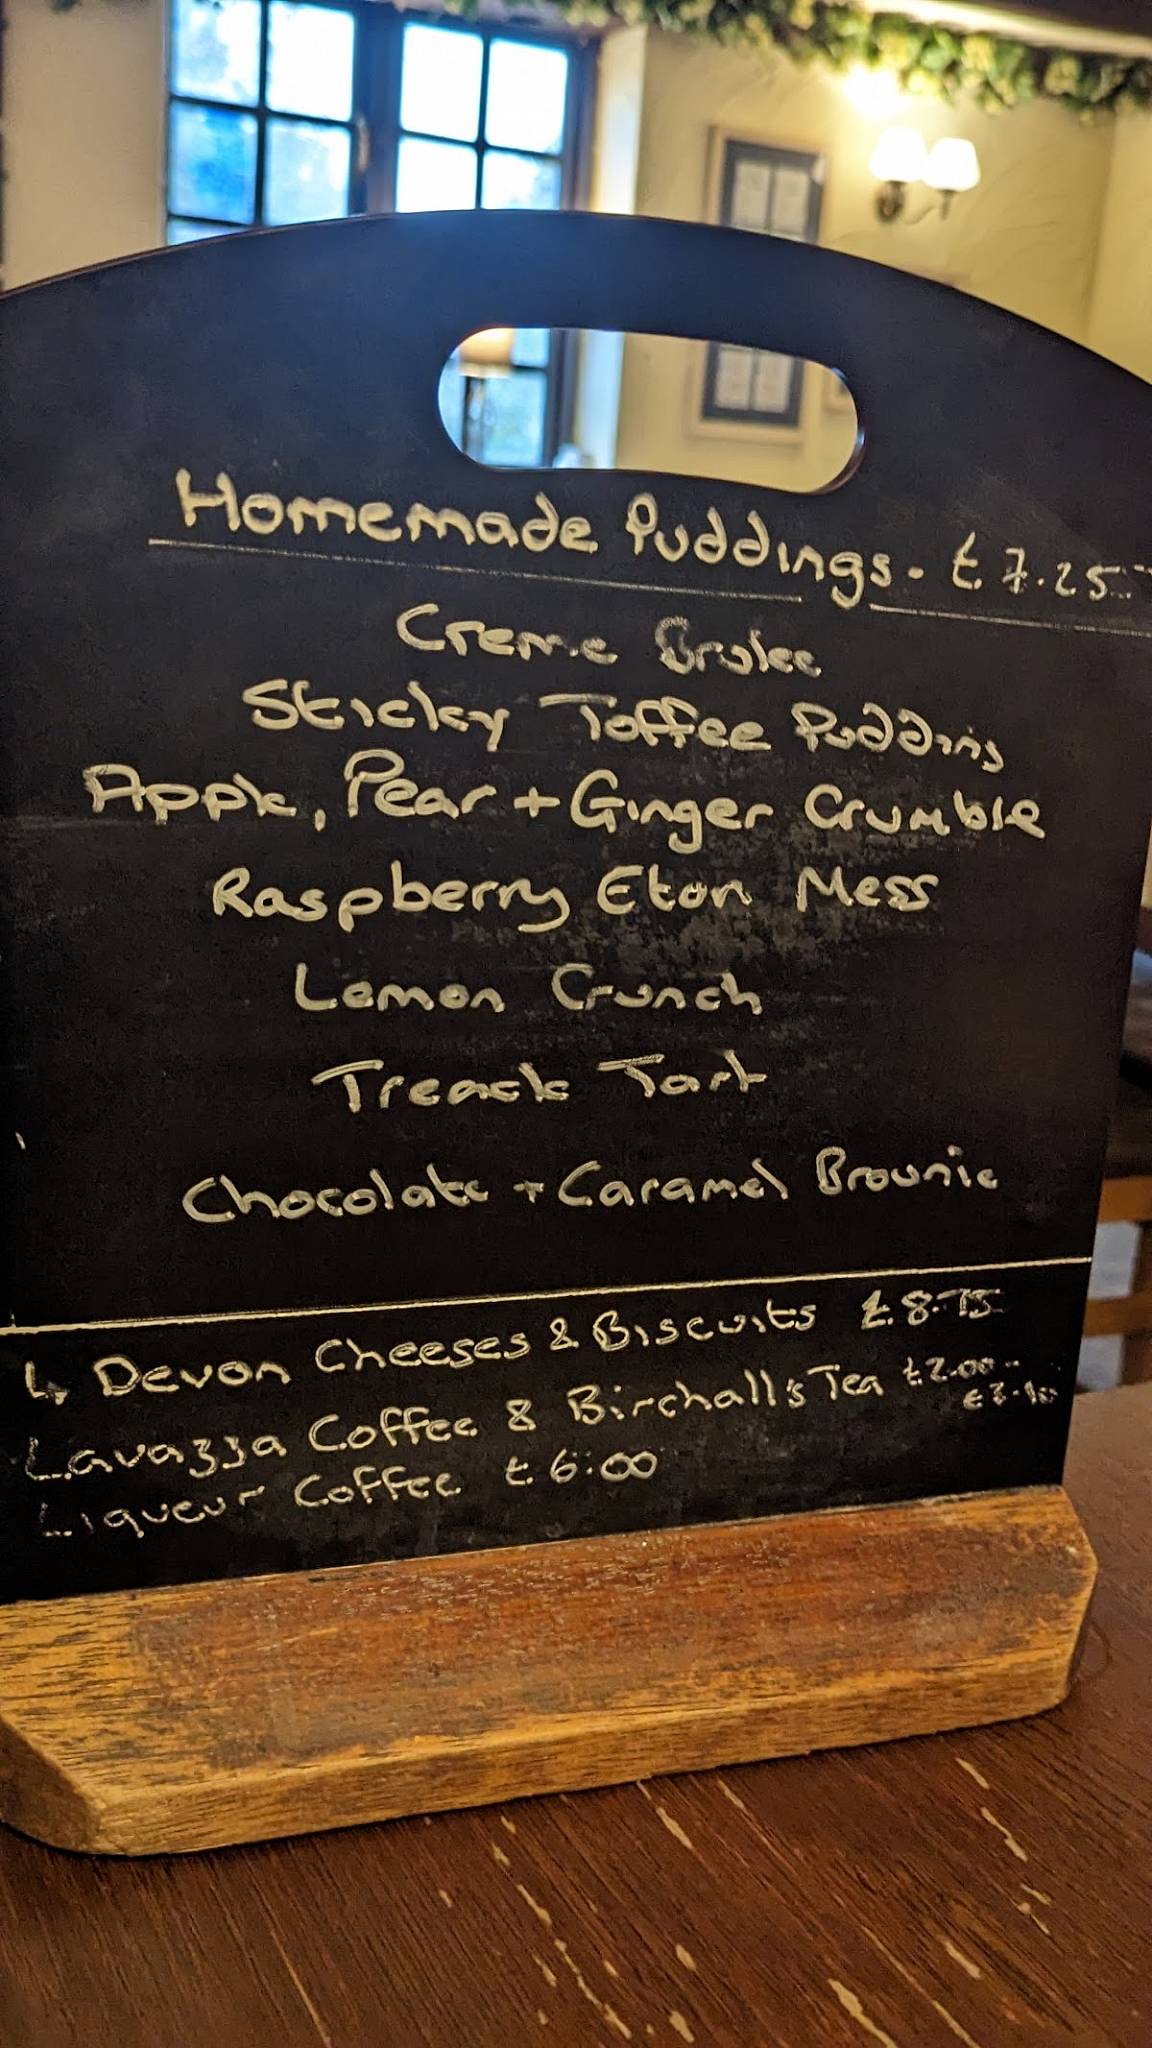 Homemade Puddings. £7.25
Creme Brulee
Sticky Toffee Pudding
Apple, Pear + Ginger Crumble
Raspberry Eton Mess
Lemon Crunch
Treacle Tart
Chocolate + Caramel Brownie
4 Devon Cheeses & Biscuits £8.75
Lavazza Coffee & Birchall's Tea £2.00
£3.10
Liqueur Coffee £6.00